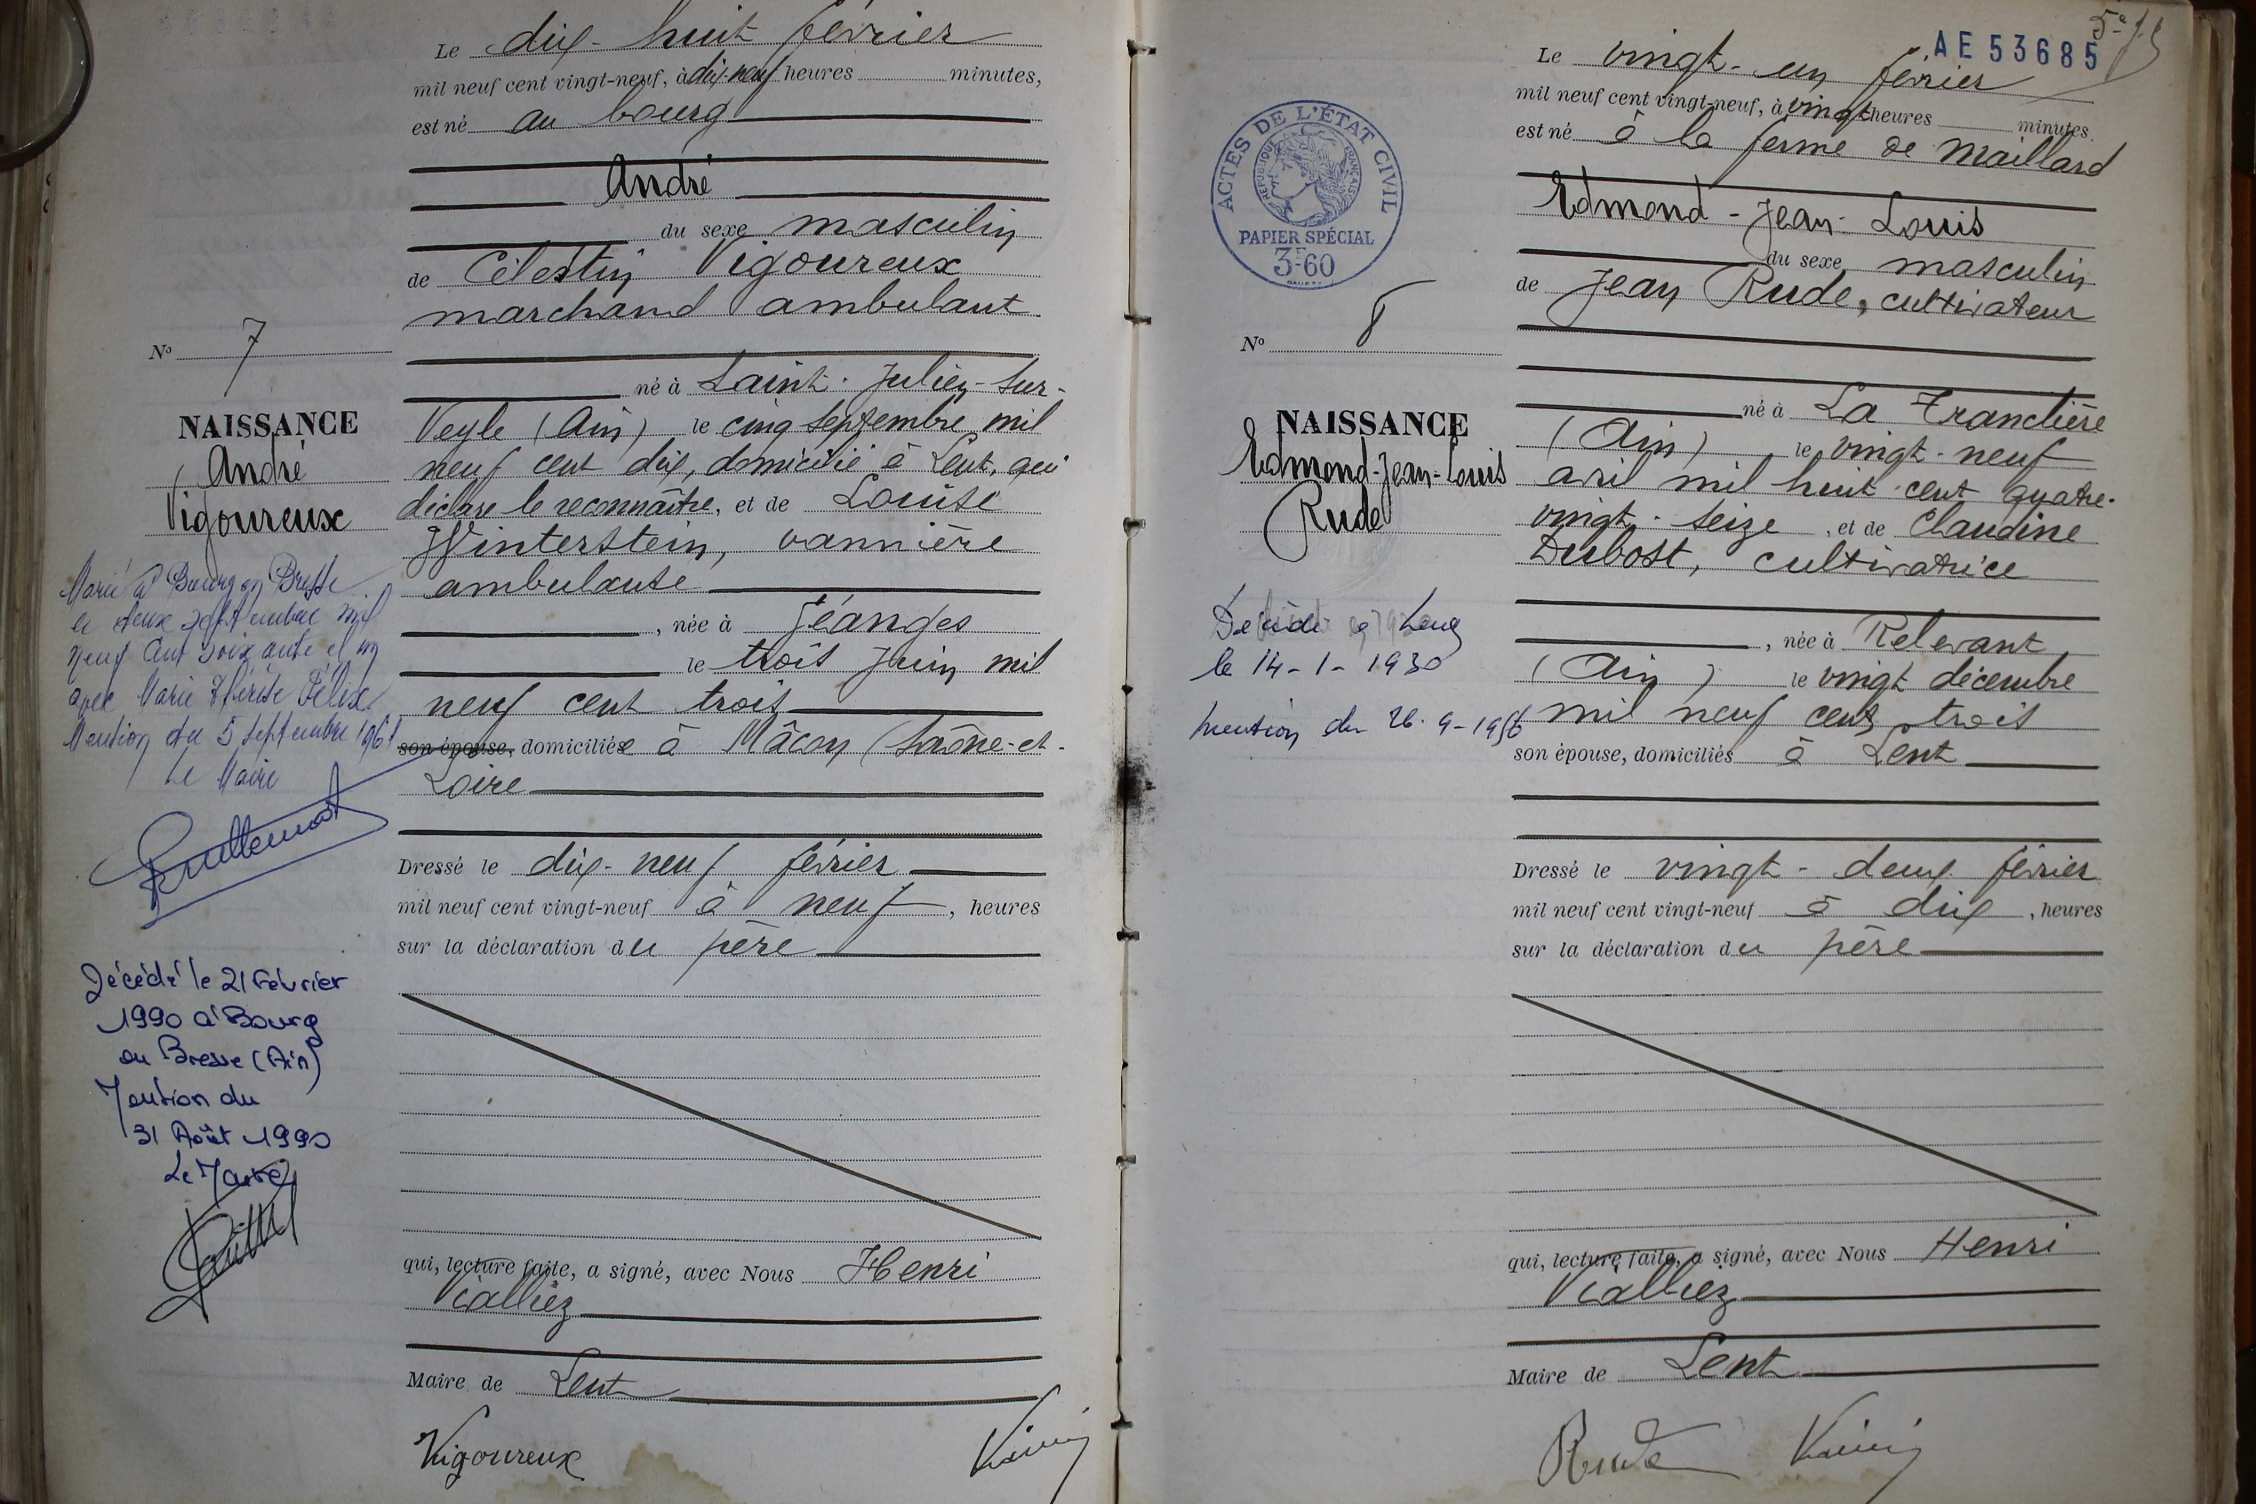 Le dix-huit février
mil neuf cent vingt-neuf, à dix-neuf heures minutes,
est né au bourg
André
du sexe masculin
de Célestin Vigoureux
marchand ambulant
né à Saint-Julien-sur-
Veyle (Ain) le cinq septembre mil
neuf cent dix, domicilié à Lent, qui
déclare le reconnaître, et de Louise
Winterstein, vannière
ambulante
, née à Jéanges
le trois juin mil
neuf cent trois
son épouse, domiciliée à Mâcon (Saône-et-
Loire
Dressé le dix-neuf février
mil neuf cent vingt-neuf à neuf, heures
sur la déclaration du père
qui, lecture faite, a signé, avec Nous Henri
Vialliez
Maire de Lent
Vigoureux
No 7
NAISSANCE
André
Vigoureux
Marié à Bourg en Bresse
le deux septembre mil
neuf cent soixante et un
avec Marie Thérèse Félix
Mention du 5 septembre 1961
Le Maire
Décédé le 21 Février
1990 à Bourg
en Bresse (Ain)
Mention du
31 Août 1990
Le Maire
AE 53685
Le vingt-un février
mil neuf cent vingt-neuf, à vingt heures minutes
est né à la ferme de Maillard
Edmond-Jean-Louis
du sexe masculin
de Jean Rude, cultivateur
né à La Tranclière
(Ain) le vingt-neuf
avril mil huit cent quatre-
vingt-seize, et de Claudine
Dubost, cultivatrice
, née à Relevant
(Ain) le vingt décembre
mil neuf cent trois
son épouse, domiciliés à Lent
Dressé le vingt-deux février
mil neuf cent vingt-neuf à dix, heures
sur la déclaration du père
qui, lecture faite, a signé, avec Nous Henri
Vialliez
Maire de Lent
Rude
ACTES DE L'ÉTAT CIVIL
RÉPUBLIQUE FRANÇAISE
PAPIER SPÉCIAL
3F60
No 8
NAISSANCE
Edmond-Jean-Louis
Rude
Décédé à Lent
le 14-1-1930
Mention du 26-9-1956